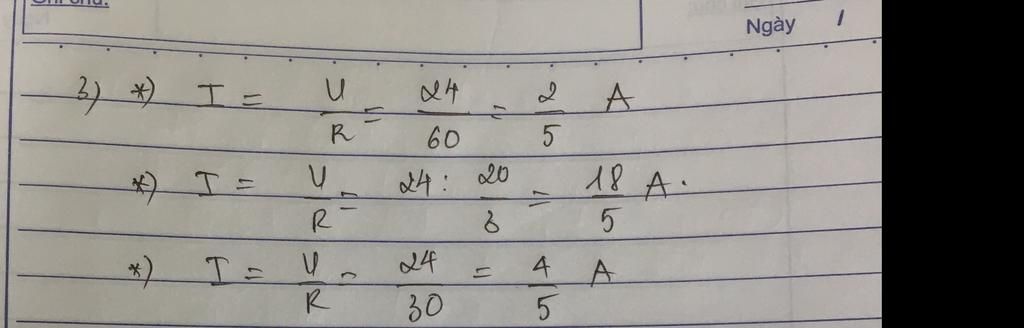 Ghi chú:
Ngày /
3) *) I = U/R = 24/60 = 2/5 A
*) I = U/R = 24 : 20/3 = 18/5 A.
*) I = U/R = 24/30 = 4/5 A